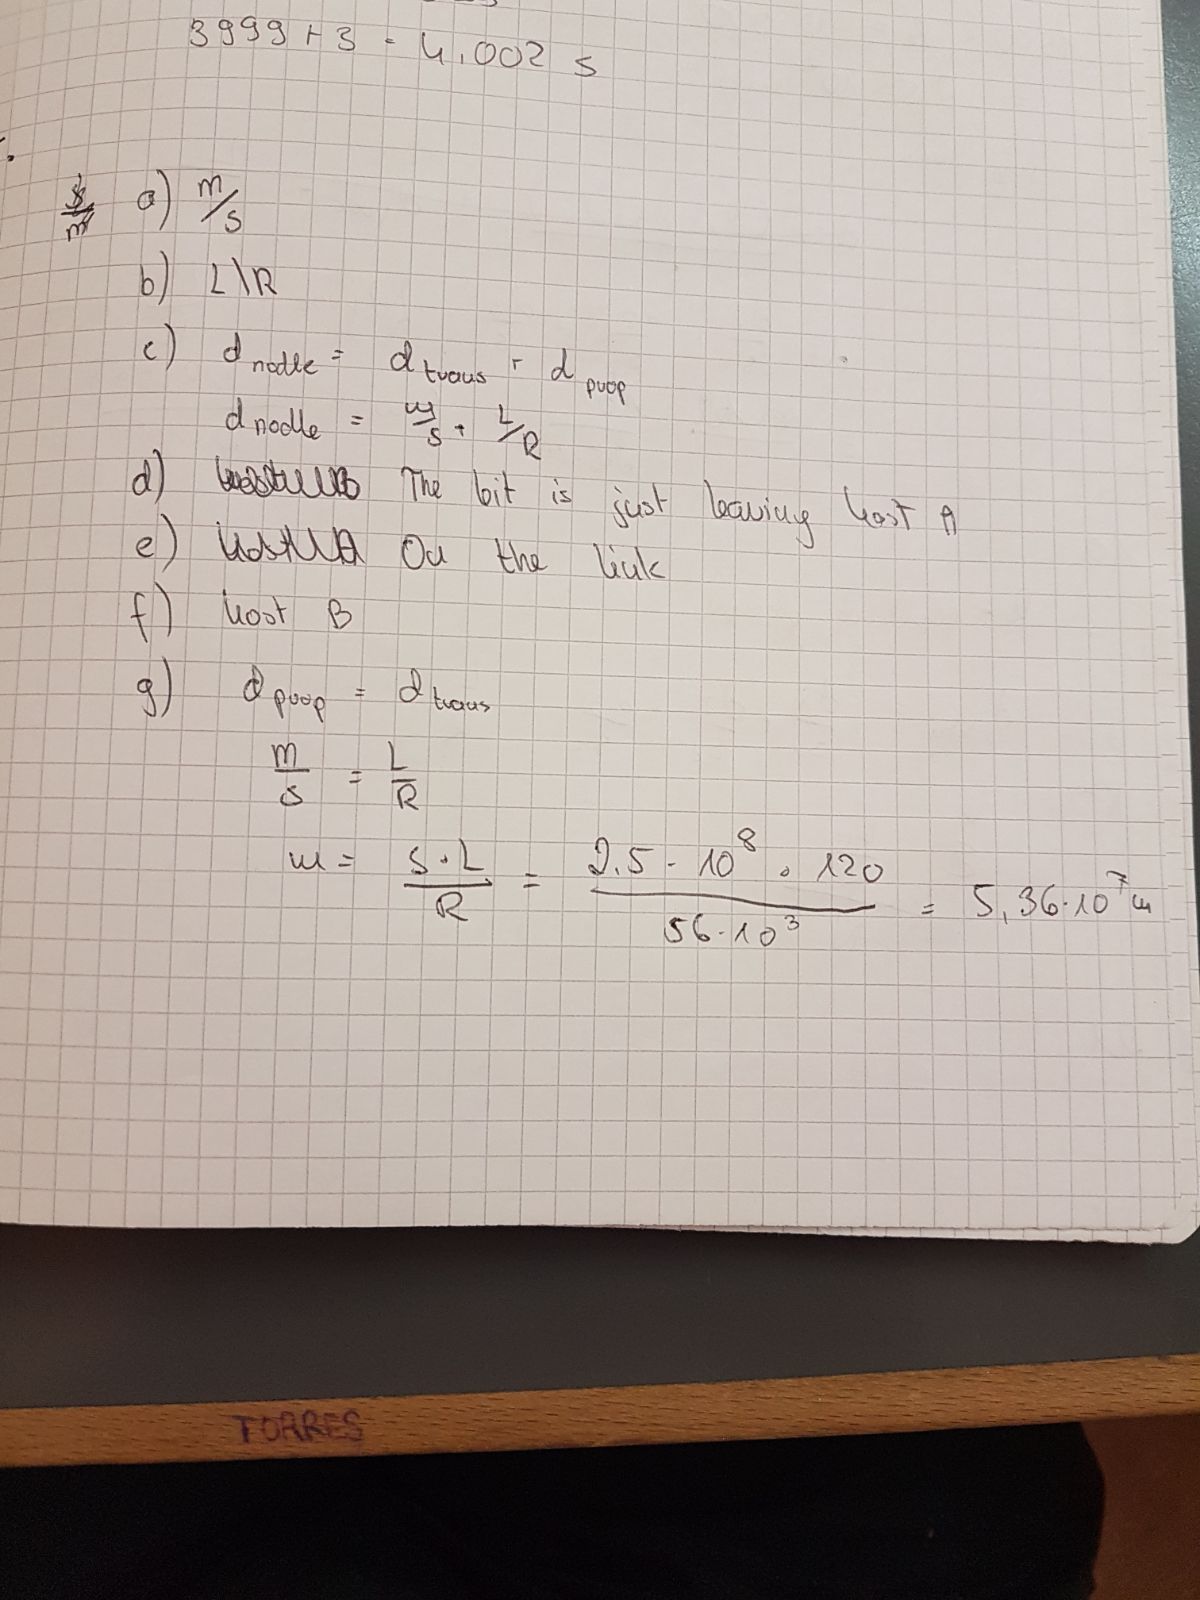 3999+3 = 4.002 s
a) m/s
b) L\R
c) d nodle = d trans + d prop
d nodle = m/s + L/R
d) The bit is just leaving host A
e) On the link
f) host B
g) d prop = d trans
m/s = L/R
m = S·L/R = 2.5 · 10^8 · 120 / 56·10^3 = 5,36·10^7 m
TORRES